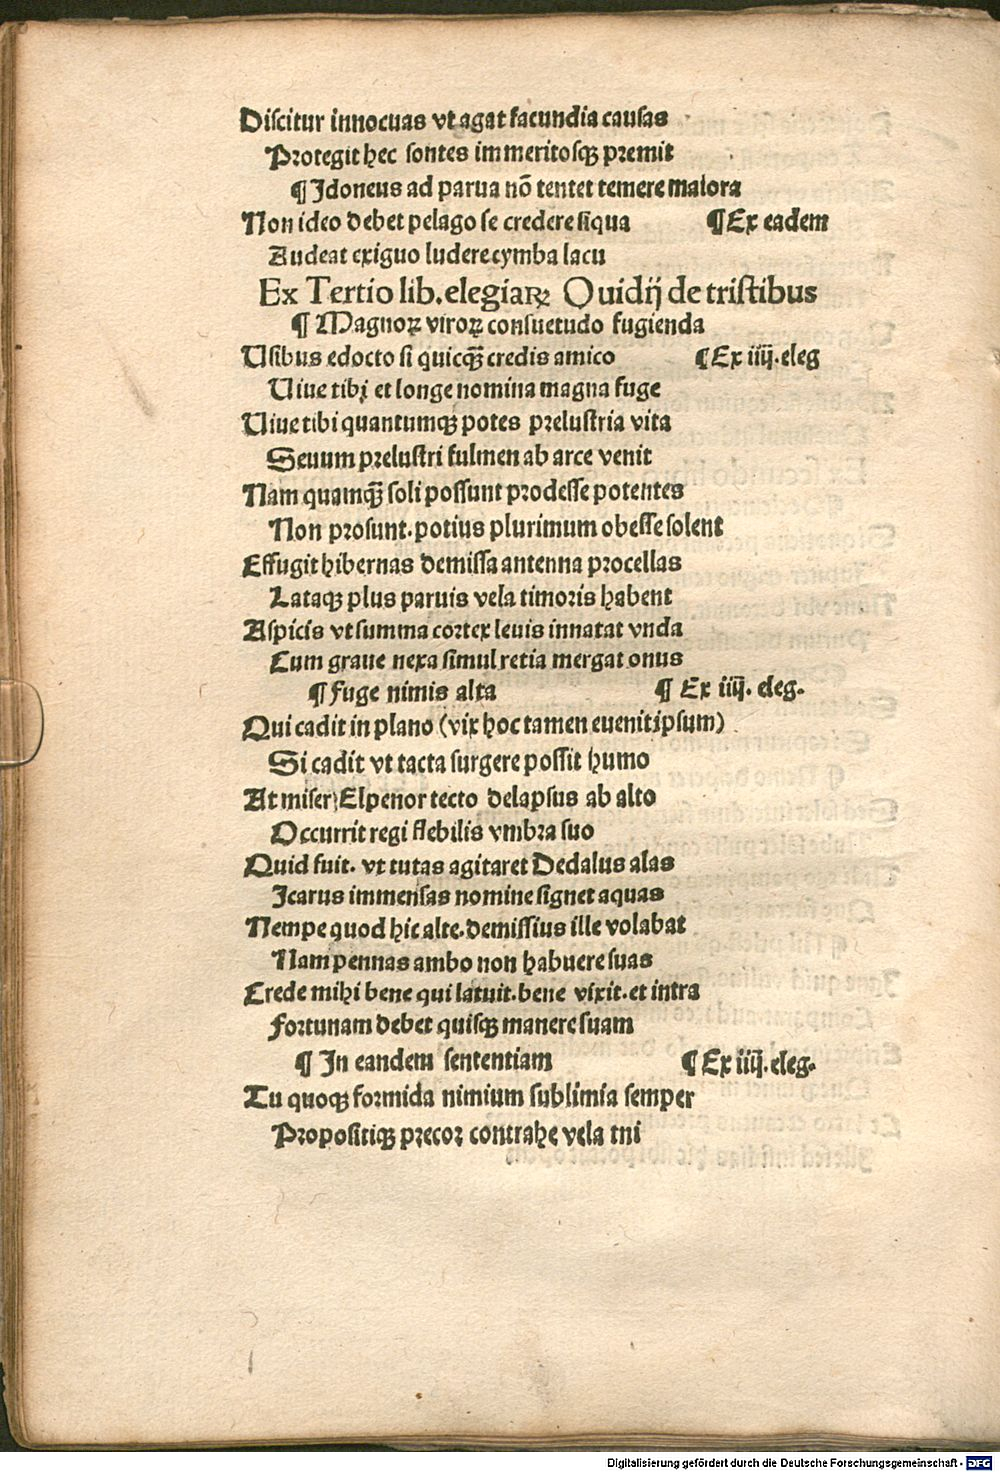 Discitur innocuas vt agat facundia causas
Protegit hec sontes immeritosqꝫ premit
¶ Jdoneus ad parua nō tentet temere maiora
Non ideo debet pelago se credere siqua ¶ Ex eadem
Audeat exiguo ludere cymba lacu
Ex Tertio lib. elegiaꝝ Ouidij de tristibus
¶ Magnoꝝ viroꝝ consuetudo fugienda
Usibus edocto si quicqꝫ̄ credis amico ¶ Ex iiij. eleg
Uiue tibi et longe nomina magna fuge
Uiue tibi quantumqꝫ potes prelustria vita
Seuum prelustri fulmen ab arce venit
Nam quamqꝫ̄ soli possunt prodesse potentes
Non prosunt. potius plurimum obesse solent
Effugit hibernas demissa antenna procellas
Lataqꝫ plus paruis vela timoris habent
Aspicis vt summa cortex leuis innatat vnda
Cum graue nexa simul retia mergat onus
¶ Fuge nimis alta ¶ Ex iiij. eleg.
Qui cadit in plano (vix hoc tamen euenit ipsum)
Si cadit vt tacta surgere possit humo
At miser Elpenor tecto delapsus ab alto
Occurrit regi flebilis vmbra suo
Quid fuit. vt tutas agitaret Dedalus alas
Icarus immensas nomine signet aquas
Nempe quod hic alte. demissius ille volabat
Nam pennas ambo non habuere suas
Crede mihi bene qui latuit. bene vixit. et intra
Fortunam debet quisqꝫ manere suam
¶ In eandem sententiam ¶ Ex iiij. eleg.
Tu quoqꝫ formida nimium sublimia semper
Propositiqꝫ precor contrahe vela tui
Digitalisierung gefördert durch die Deutsche Forschungsgemeinschaft - DFG